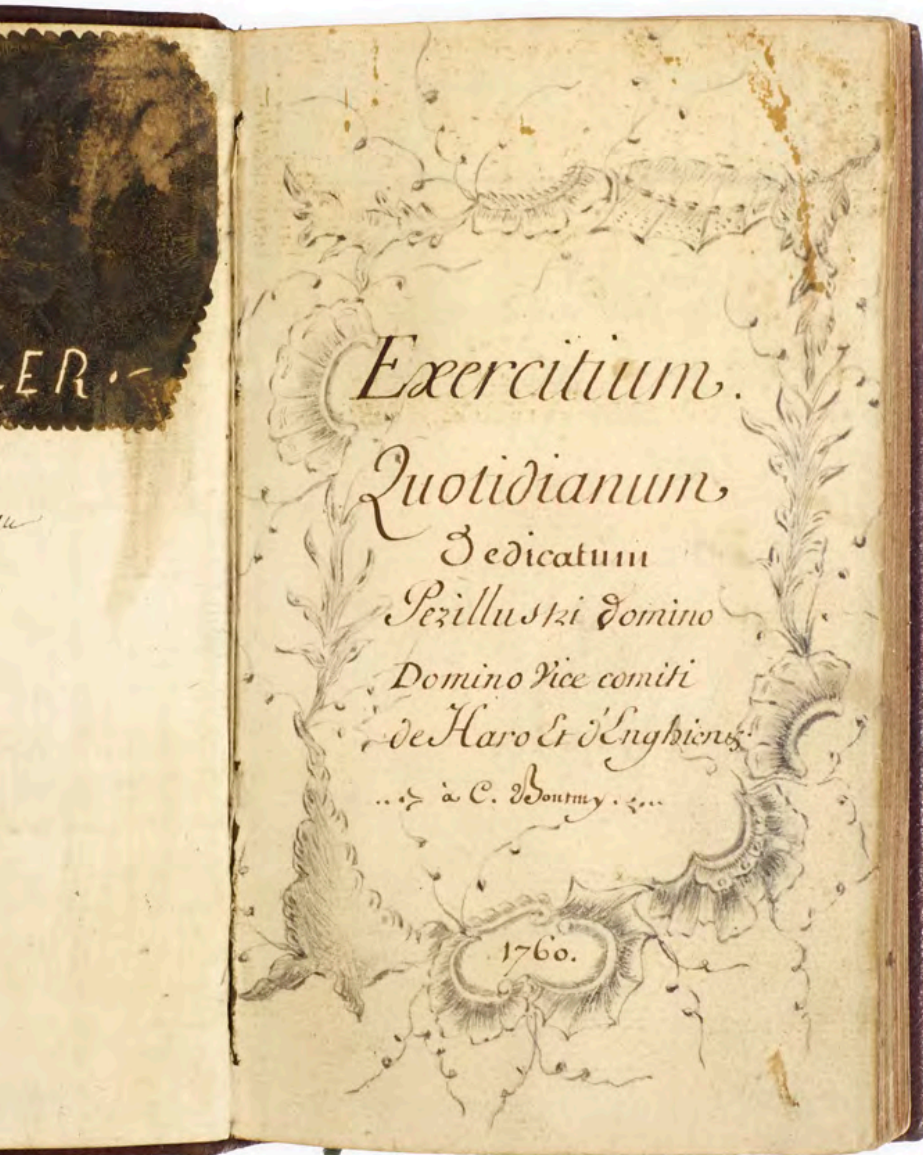 ER.-
Exercitium.
Quotidianum,
Dedicatum
Perillustri Domino
Domino Vice comiti
de Haro Et d'Enghien
à C. Boutmy.
1760.